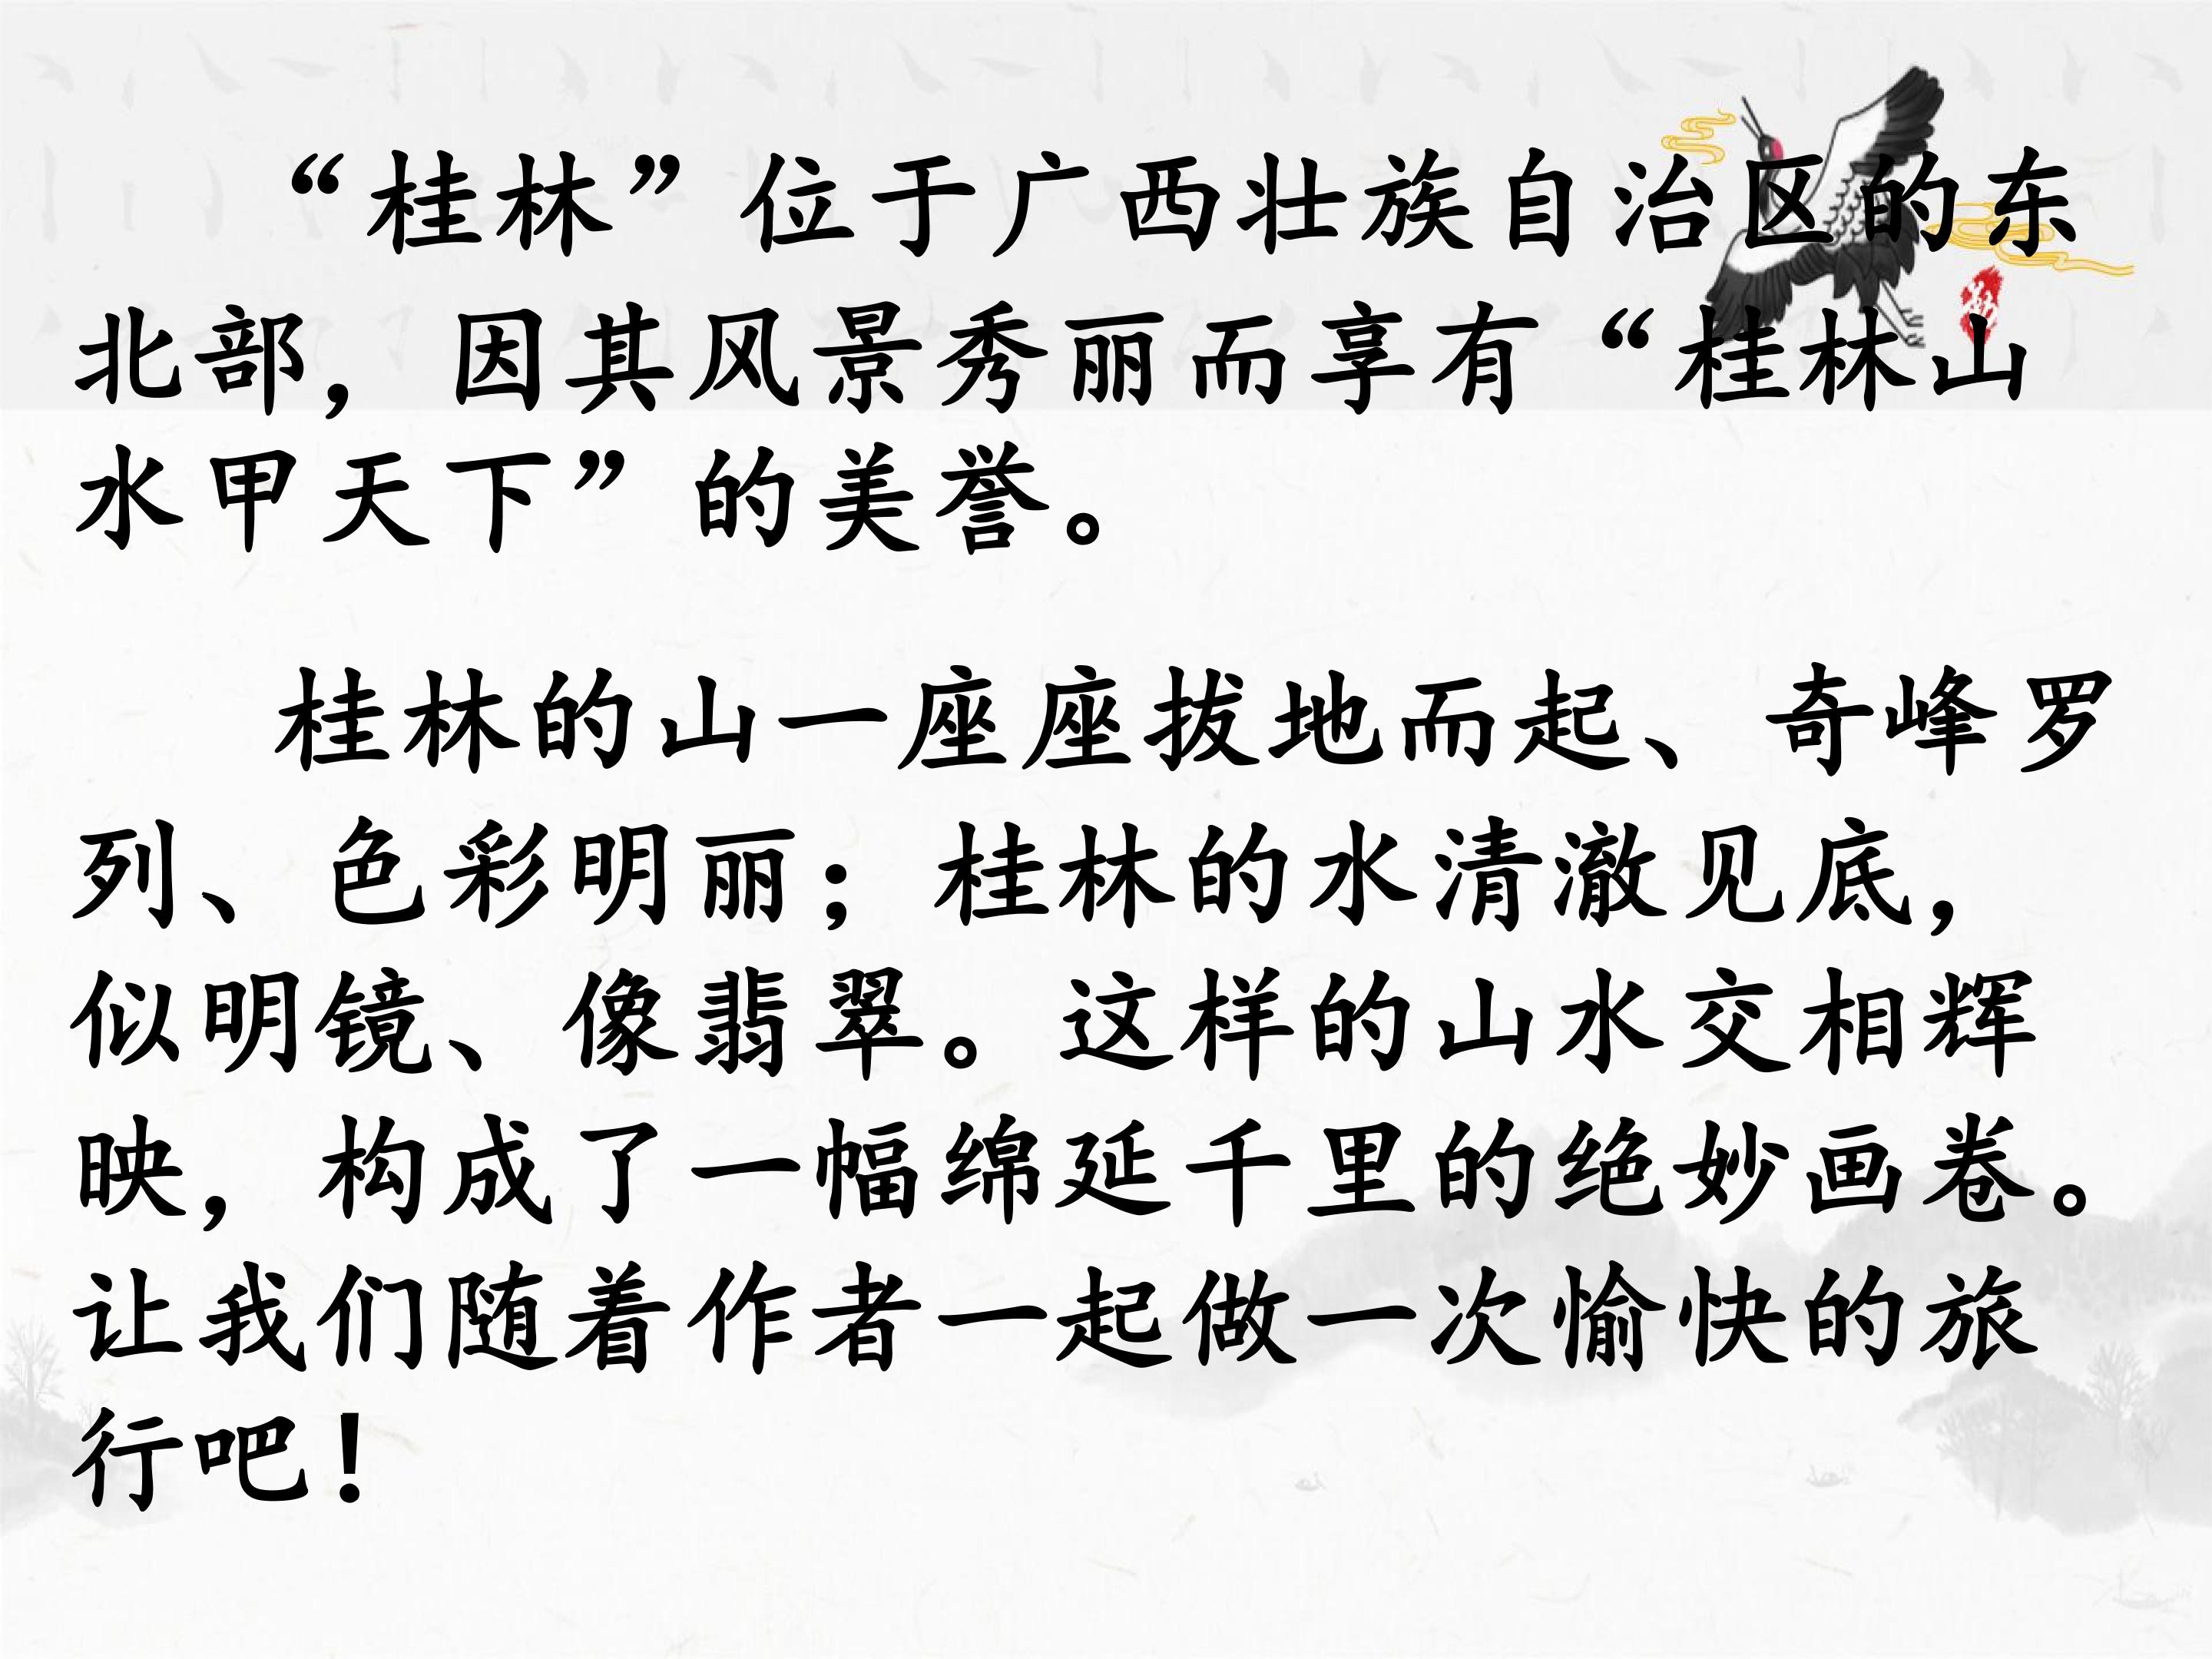 “桂林”位于广西壮族自治区的东
北部，因其风景秀丽而享有“桂林山
水甲天下”的美誉。
桂林的山一座座拔地而起、奇峰罗
列、色彩明丽；桂林的水清澈见底，
似明镜、像翡翠。这样的山水交相辉
映，构成了一幅绵延千里的绝妙画卷。
让我们随着作者一起做一次愉快的旅
行吧！